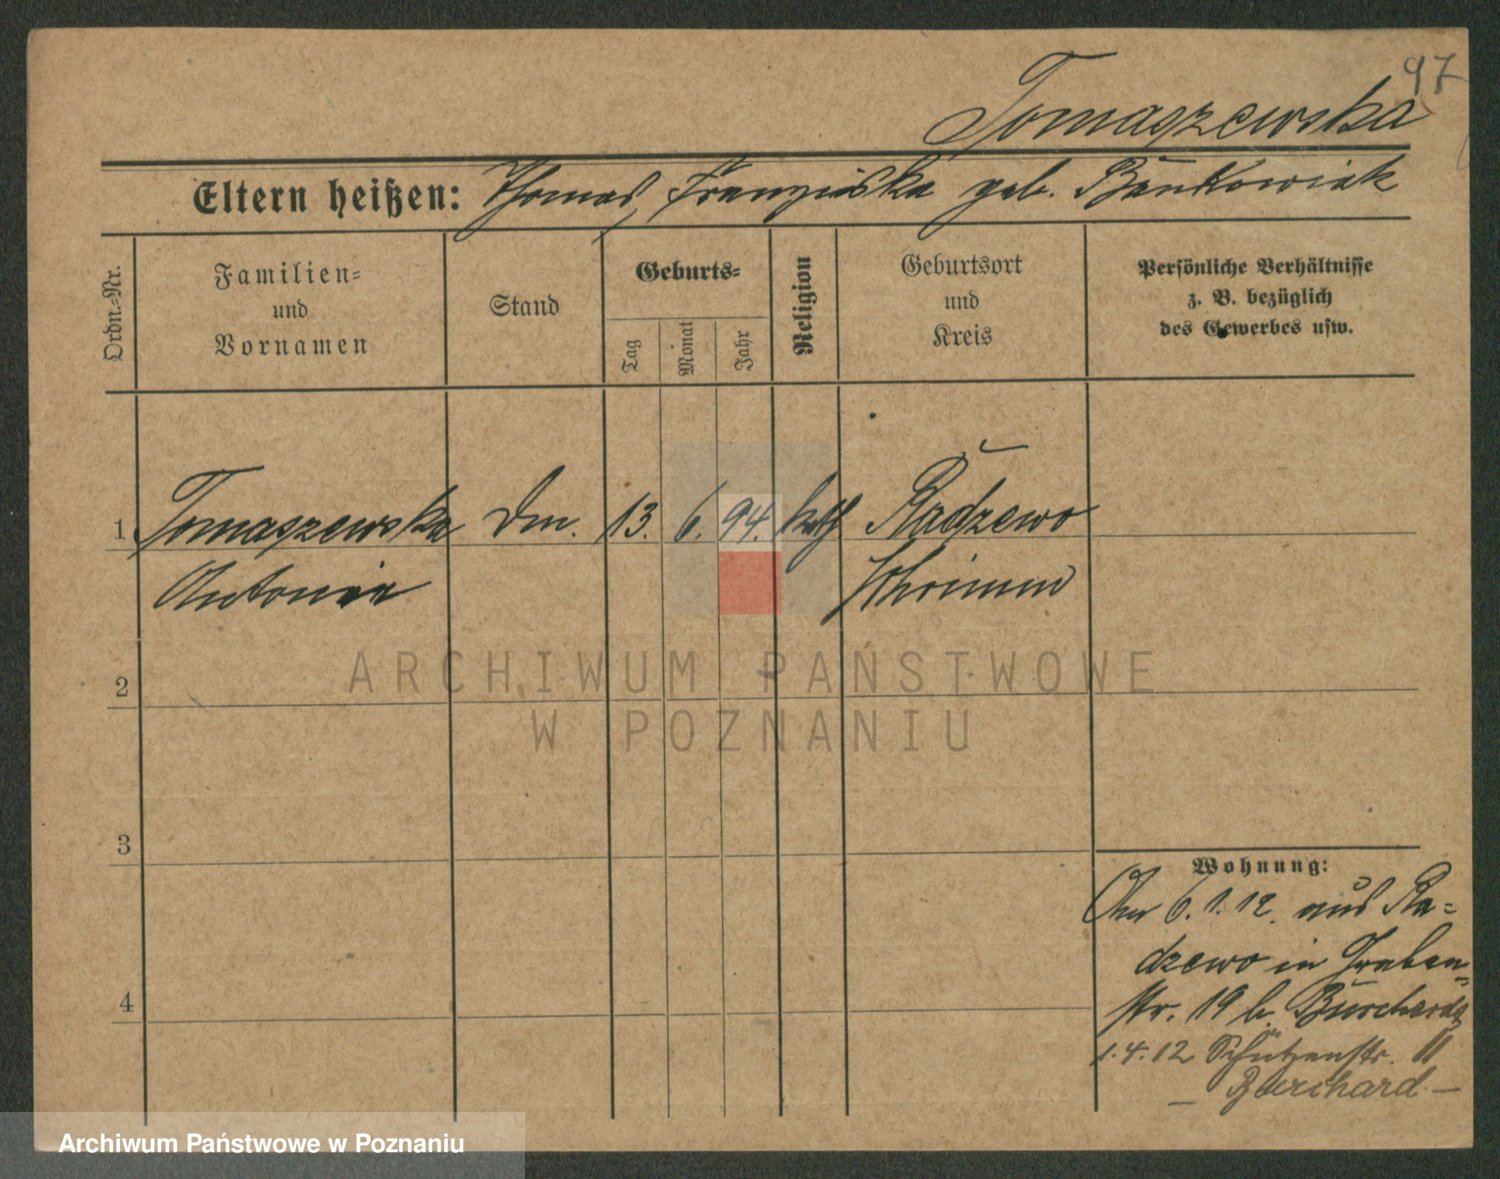 97
Tomaszewska
Eltern heißen: Thomas, Franziska geb. Bankowiak
Ordn.-Nr.
Familien-
und
Vornamen
Stand
Geburts-
Tag
Monat
Jahr
Religion
Geburtsort
und
Kreis
Persönliche Verhältnisse
z. B. bezüglich
des Gewerbes usw.
1 Tomaszewska 13. 6. 94. kath Radzewo
Antonie Schrimm
ARCHIWUM PAŃSTWOWE
W POZNANIU
2
3
4
Wohnung:
Am 6.1.12. aus Ra-
dzewo in Graben-
str. 19 b. Burchard
1.4.12 Schützenstr. 11
Burchard
Archiwum Państwowe w Poznaniu